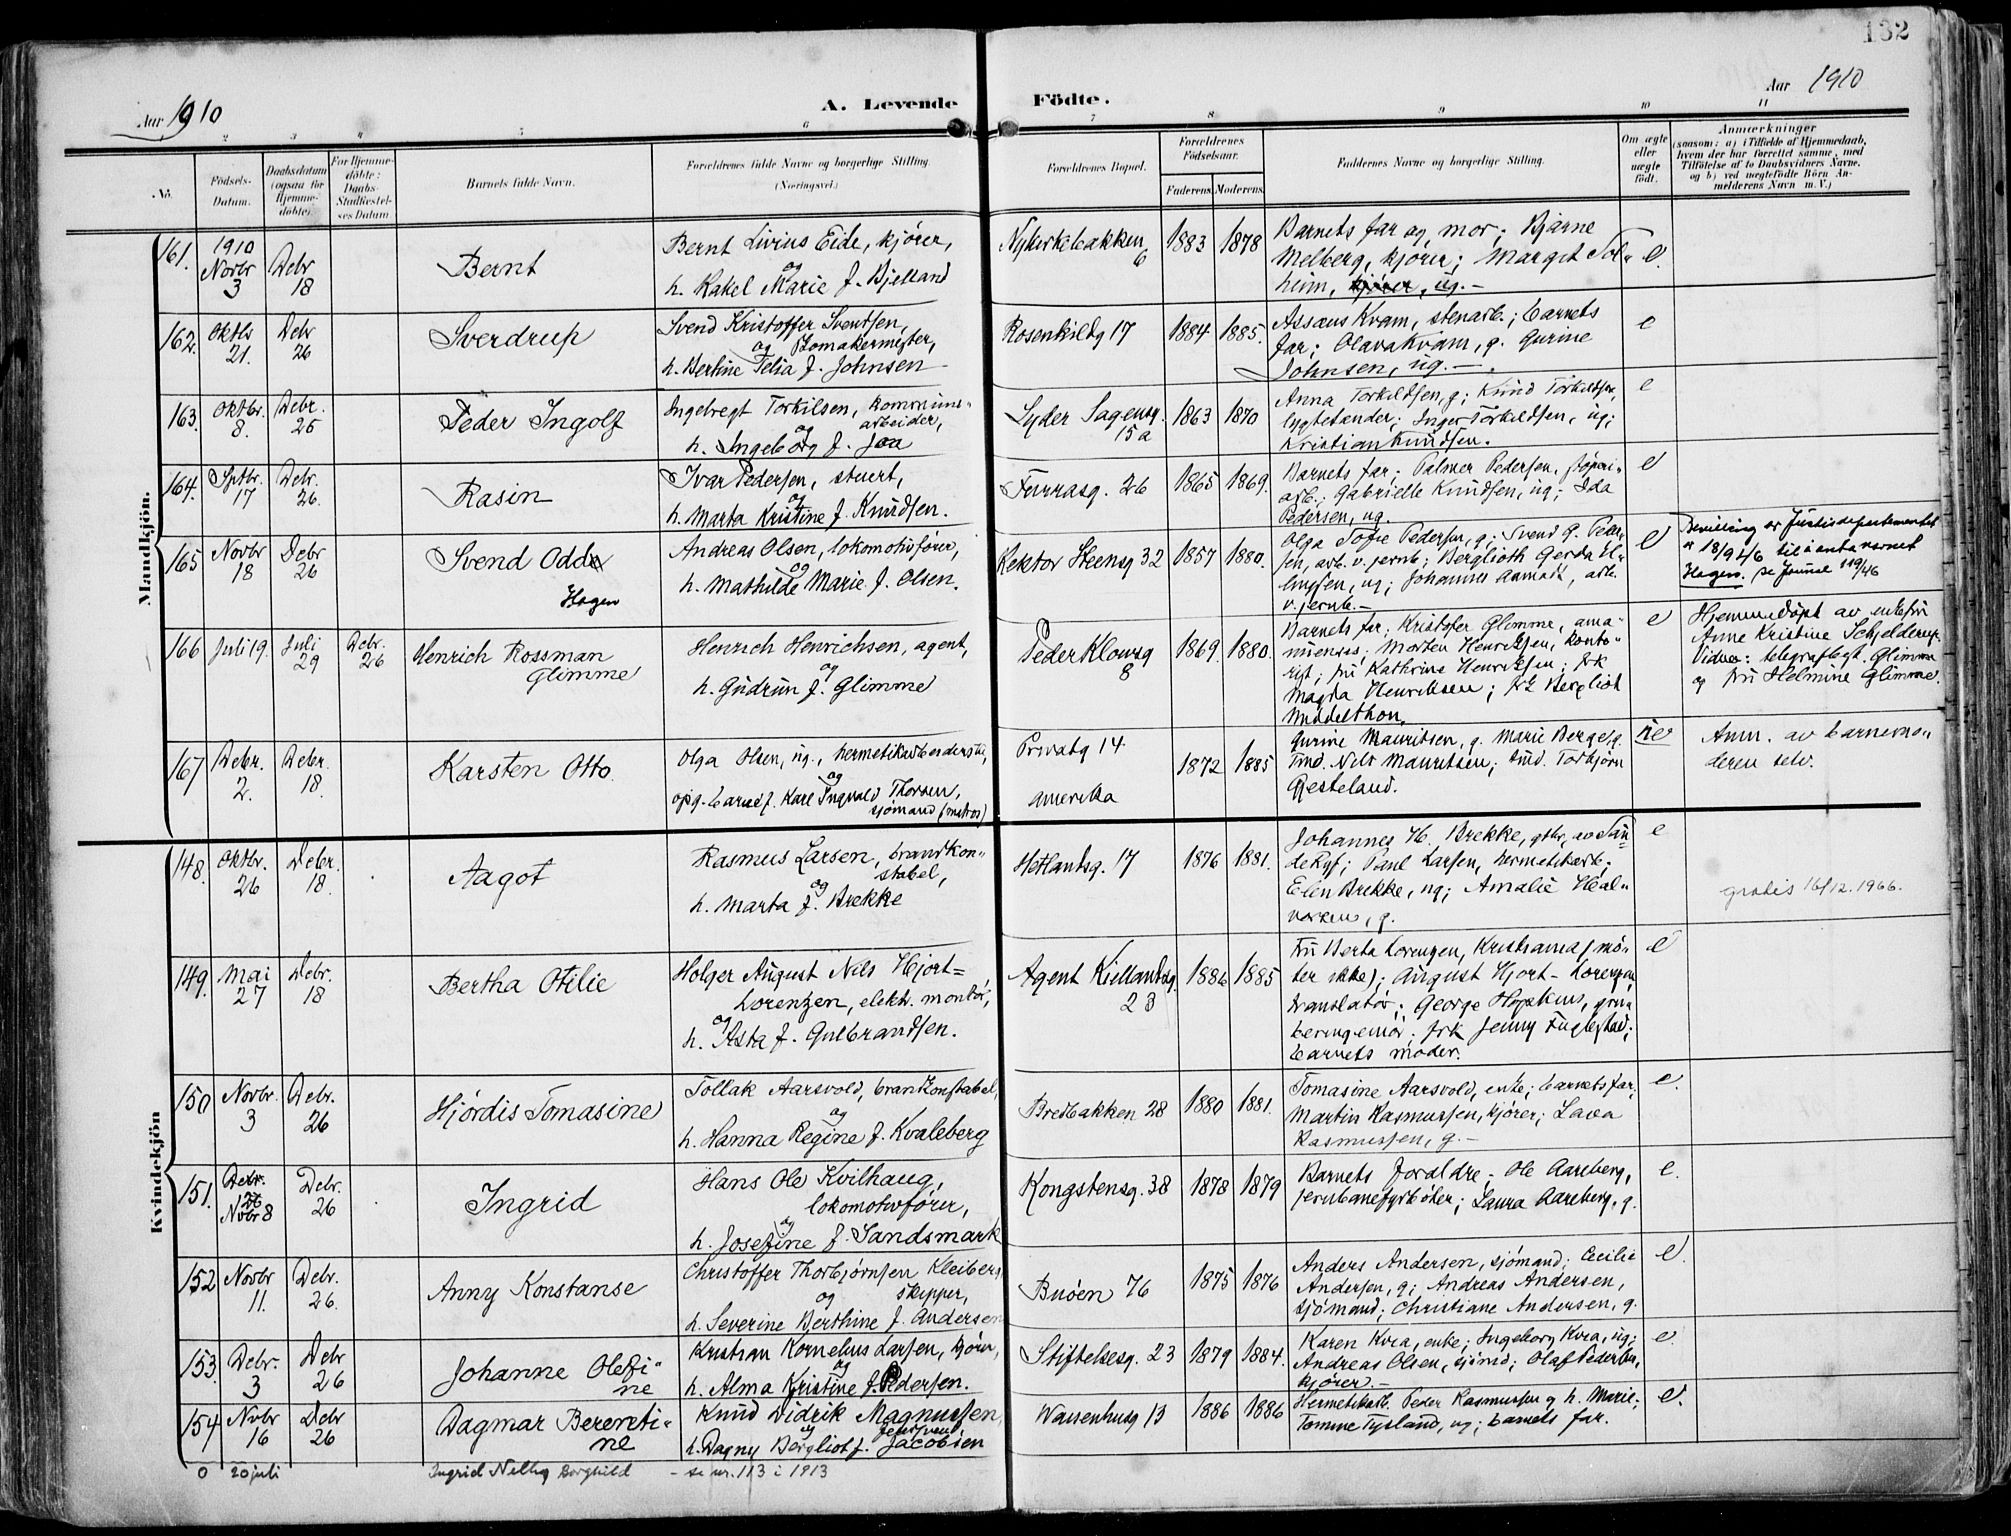 132
Aar 1910
A. Levende Födte.
Aar 1910
2 3 4 5 6 7 8 9 10 11
No.
Födsels-Datum.
Daabsdatum (ogsaa for Hjemmedöbte).
For Hjemmedöbte: Daabs-Stadfæstelses Datum
Barnets fulde Navn.
Forældrenes fulde Navne og borgerlige Stilling. (Næringsvei.)
Forældrenes Bopæl.
Forældrenes Födselsaar.
Faderens. Moderens.
Faddernes Navne og borgerlige Stilling.
Om ægte eller uægte födt.
Anmærkninger
(saasom: a) i Tilfælde af Hjemmedaab,
hvem der har forrettet samme, med
Tilföielse af to Daabsvidners Navne,
og b) ved uægtefödte Börn An-
melderens Navn m. V.)
Mandkjön.
161. 1910 Novbr 3
Debr 18
Bernt
Bernt Livius Eide, kjører,
og
h. Rakel Marie f. Bjelland
Nykirkebakken 6
1883 1878
Barnets far og mor; Bjarne
Melberg, kjører; Margit Sol-
heim, kjører, ug. -
e.
162. Oktb 21.
Debr 26
Sverdrup
Svend Kristoffer Svendsen,
og blomakermester,
h. Bertine Felia f. Johnsen
Rosenkildg 17
1884 1885.
Assæus Kvam, stenarb.; barnets
far; Olava Kvam, g. Gurine
Johnsen, ug. -
e
163. Oktbr. 8.
Debr. 25
Peder Ingolf
Ingebregt Torkilsen, kommune-
og arbeider,
h. Ingeborg f. Joa
Lyder Sagensg. 15 a
1863 1870
Anna Torkildsen, g; Knud Torkildsen,
lygtetænder; Inger Torkildsen, ug;
Kristian Knudsen.
e
164. Septbr. 17
Debr. 26.
Rasin
Ivar Pedersen, stuert,
og
h. Marta Kristine f. Knudsen.
Furrasg. 26
1865 1869.
Barnets far; Palmer Pedersen, støperi-
arb.; Gabrielle Knudsen, ug; Ida
Pedersen, ug.
e
165 Novbr 18
Debr 26
Svend Odd
Hagen
Andreas Olsen, lokomotivfører,
og
h. Mathilde Marie f. Olsen.
Rektor Steensg 32
1857 1880.
Olga Sofie Pedersen, g; Svend G. Peder-
sen, arb. v. jernb; Berglioth Gerda El-
lingsen, ug; Johannes Aamodt, arb.
v. jernb. -
e
Bevilling av Justisdepartementet
18/9 46 til å anta navnet
Hagen. se Journal 119/46
166 Juli 19.
Juli 29
Debr. 26
Henrich Rossman
Glimme
Henrich Henrichsen, agent,
og
h. Gudrun f. Glimme
Peder Klowsg 8
1869. 1880.
Barnets far; Kristofer Glimme, ama-
nuensis; Morten Henriksen, konto-
rist; fru Kathrine Henriksen; frk
Magda Henriksen; frk Bergliot
Middelthon.
e
Hjemmedøpt av enkefru
Anne Kristine Schjelderup.
Vidner: telegrafbest. Glimme
og fru Helmine Glimme.
167 Debr. 2.
Debr. 18.
Karsten Otto.
Olga Olsen, ug.,
og
opg. barnef. Karl Ingvald Thorsen,
sjømand (matros)
Privatg 14
Amerika
1872 1885
Gurine Mauritsen, g. Marie Berge, g.
Smd. Nils Mauritsen; smd. Torbjørn
Gjesteland.
ue
Anm. av barnemo-
deren selv.
Kvindekjön
148. Oktbr. 26
Debr. 18.
Aagot
Rasmus Larsen, brandkon-
stabel,
og
h. Marta f. Brekke
Hetlandsg. 17
1876 1881.
Johannes H. Brekke, gbr. av San-
de Ryf; Paul Larsen, hermetikarb.
Elen Brekke, ug; Amalie Hal-
vorsen, g.
e
gratis 16/12. 1966.
149. Mai 27
Debr. 18
Bertha Otilie
Holger August Nils Hjort-
Lorenzen, elektr. montør,
og
h. Asta f. Gulbrandsen.
Agent Kiellandsg. 23
1886 1885
Fru Berta Lorenzen, Kristiania (mø-
ter ikke); August Hjort-Lorenzen,
translatør; George Hopkins,
frk Jenny Fuglestad;
barnets moder.
e
150 Novbr. 3
Debr. 26
Hjørdis Tomasine
Tollak Aarsvold, brandkonstabel,
og
h. Hanna Regine f. Kvaleberg
Bredbakken 28
1880 1881.
Tomasine Aarsvold, enke; barnets far;
Martin Rasmussen, kjører; Lava
Rasmussen, g. -
e.
151. Debr. 26
Novbr 8
Debr. 26
Ingrid
Hans Ole Kvilhaug,
lokomotivfører,
og
h. Josefine f. Sandsmark
Kongstensg. 38
1878 1879
Barnets foraldre. Ole Aareberg,
jernbanefyrbøter; Laura Aareberg, g.
e.
152 Novbr 11.
Debr. 26.
Anny Konstanse
Christoffer Thorbjørnsen Kleiberg,
og skipper,
h. Severine Berthine f. Andersen
Buøen 76
1875 1876
Anders Andersen, sjømand; Cecilie
Andersen, g; Andreas Andersen,
sjømand; Christiane Andersen, g.
e
153. Debr. 3
Debr 26
Johanne Olefi-
ne
Kristian Kornelius Larsen, kjører,
og
h. Alma Kristine f. Pedersen.
Stiftelsesg. 23
1879 1884.
Karen Kvia, enke; Ingeborg Kvia, ug;
Andreas Olsen, sjømd; Olaf Pedersen,
kjører -
e
154 Novbr 16
Debr 26
Dagmar Bererenti-
ne
Knud Didrik Magnussen,
og
h. Dagny Bergliot f. Jacobsen
Waisenhusg 13
1886 1886
Hermetikarb. Peder Rasmussen og h. Marie;
Tomine Tysland, ug; barnets far.
e.
0 20 juli
Ingrid Nelly Borghild - se nr. 113 i 1913